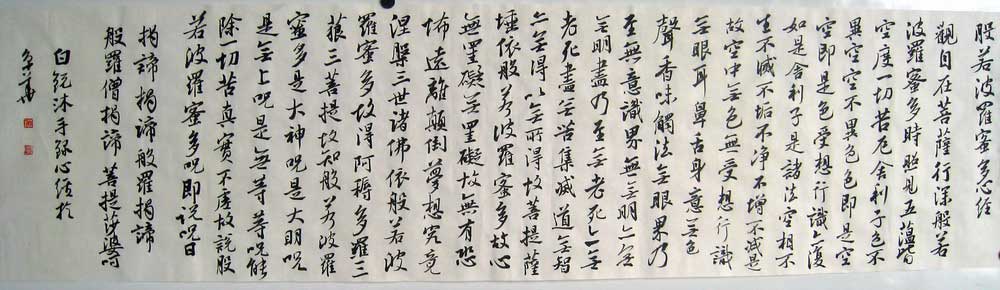 般若波羅蜜多心經
觀自在菩薩行深般若
波羅蜜多時照見五蘊皆
空度一切苦厄舍利子色不
異空空不異色色即是空
空即是色受想行識亦復
如是舍利子是諸法空相不
生不滅不垢不淨不增不減是
故空中無色無受想行識
無眼耳鼻舌身意無色
聲香味觸法無眼界乃
至無意識界無無明亦無
無明盡乃至無老死亦無
老死盡無苦集滅道無智
亦無得以無所得故菩提薩
埵依般若波羅蜜多故心
無罣礙無罣礙故無有恐
怖遠離顛倒夢想究竟
涅槃三世諸佛依般若波
羅蜜多故得阿耨多羅三
藐三菩提故知般若波羅
蜜多是大神咒是大明咒
是無上咒是無等等咒能
除一切苦真實不虛故說般
若波羅蜜多咒即說咒曰
揭諦揭諦般羅揭諦
般羅僧揭諦菩提莎婆訶
白鋭沐手録心經於
京華